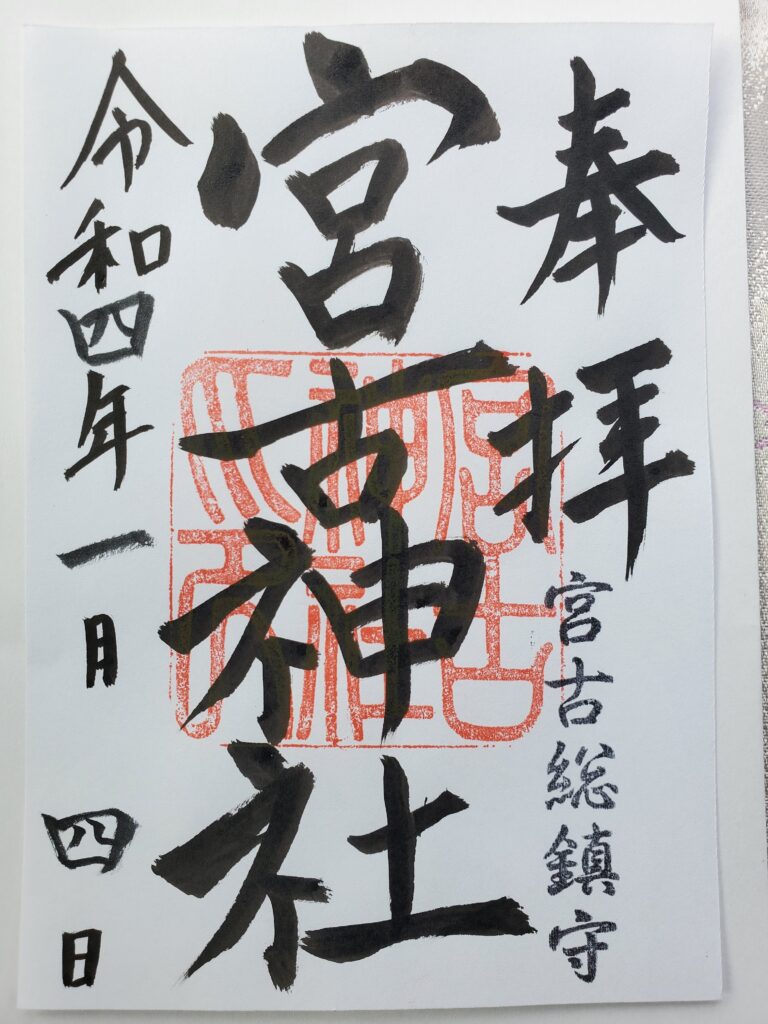 奉拝
宮古総鎮守
宮古神社
令和四年一月四日